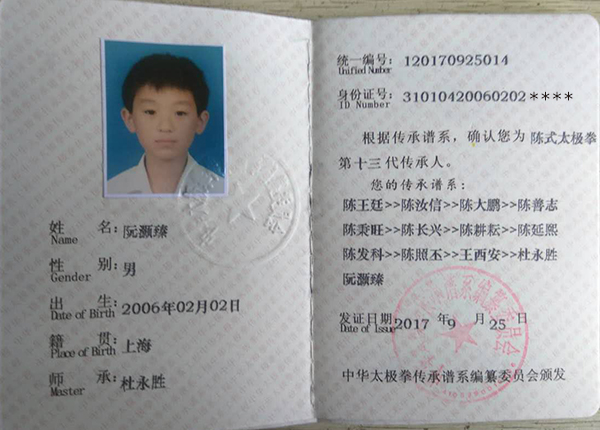 姓 名: 阮灏臻
Name
性 别: 男
Gender
出 生: 2006年02月02日
Date of Birth
籍 贯: 上海
Place of Birth
师 承: 杜永胜
Master
统一编号: 120170925014
Unified Number
身份证号: 31010420060202****
ID Number
根据传承谱系，确认您为 陈式太极拳
第十三代传承人。
您的传承谱系：
陈王廷>>陈汝信>>陈大鹏>>陈善志
陈秉旺>>陈长兴>>陈耕耘>>陈延熙
陈发科>>陈照丕>>王西安>>杜永胜
阮灏臻
发证日期: 2017 年 9 月 25 日
Date of Issue
中华太极拳传承谱系编纂委员会颁发